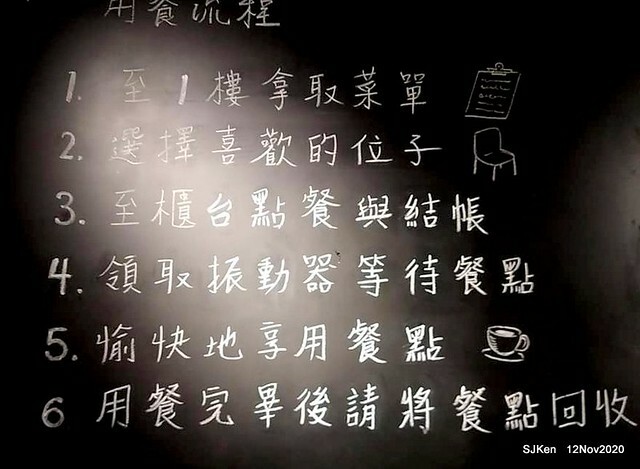 用餐流程
1. 至1樓拿取菜單
2. 選擇喜歡的位子
3. 至櫃台點餐與結帳
4. 領取振動器等待餐點
5. 愉快地享用餐點
6 用餐完畢後請將餐點回收
SJKen 12Nov2020